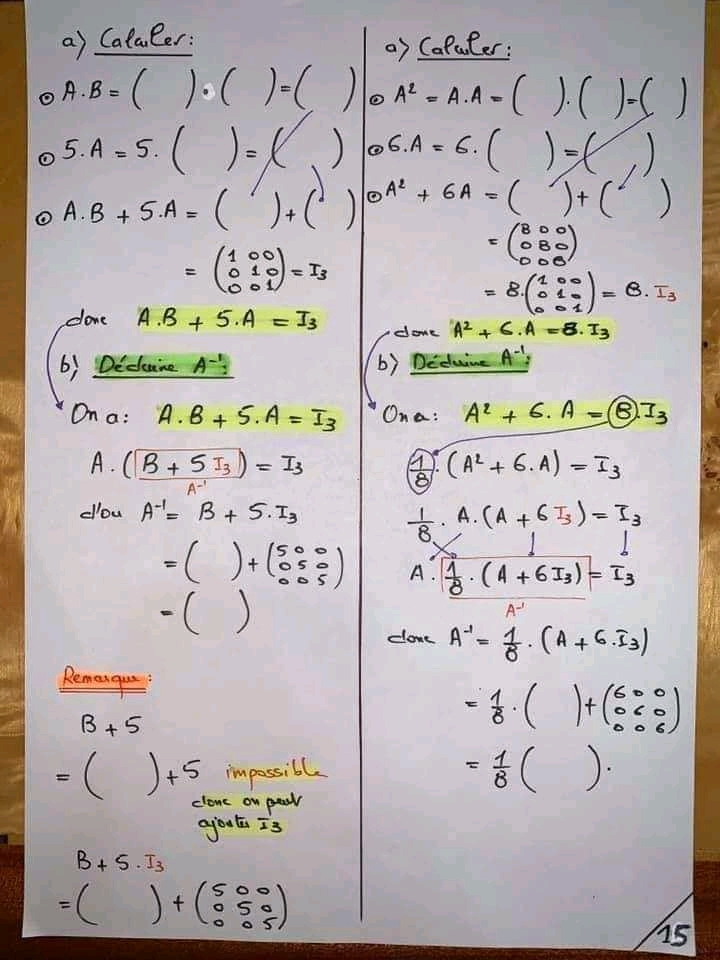 a) Calculer:
⊙ A.B = (   ) . (   ) = (   )
⊙ 5.A = 5. (   ) = (   )
⊙ A.B + 5.A = (   ) + (   )
= (1 0 0
0 1 0
0 0 1) = I₃
donc A.B + 5.A = I₃
b) Déduire A⁻¹:
On a: A.B + 5.A = I₃
A. (B + 5 I₃) = I₃
A⁻¹
d'ou A⁻¹ = B + 5.I₃
= (   ) + (5 0 0
0 5 0
0 0 5)
= (   )
Remarque:
B + 5
= (   ) + 5 impossible
donc on peut
ajouter I₃
B + 5.I₃
= (   ) + (5 0 0
0 5 0
0 0 5)
a) Calculer:
⊙ A² = A.A = (   ) . (   ) = (   )
⊙ 6.A = 6. (   ) = (   )
⊙ A² + 6A = (   ) + (   )
= (8 0 0
0 8 0
0 0 8)
= 8. (1 0 0
0 1 0
0 0 1) = 8. I₃
donc A² + 6.A = 8. I₃
b) Déduire A⁻¹:
On a: A² + 6.A = 8. I₃
1/8 . (A² + 6.A) = I₃
1/8 . A. (A + 6 I₃) = I₃
A. 1/8 . (A + 6 I₃) = I₃
A⁻¹
donc A⁻¹ = 1/8 . (A + 6. I₃)
= 1/8 . (   ) + (6 0 0
0 6 0
0 0 6)
= 1/8 (   ).
15